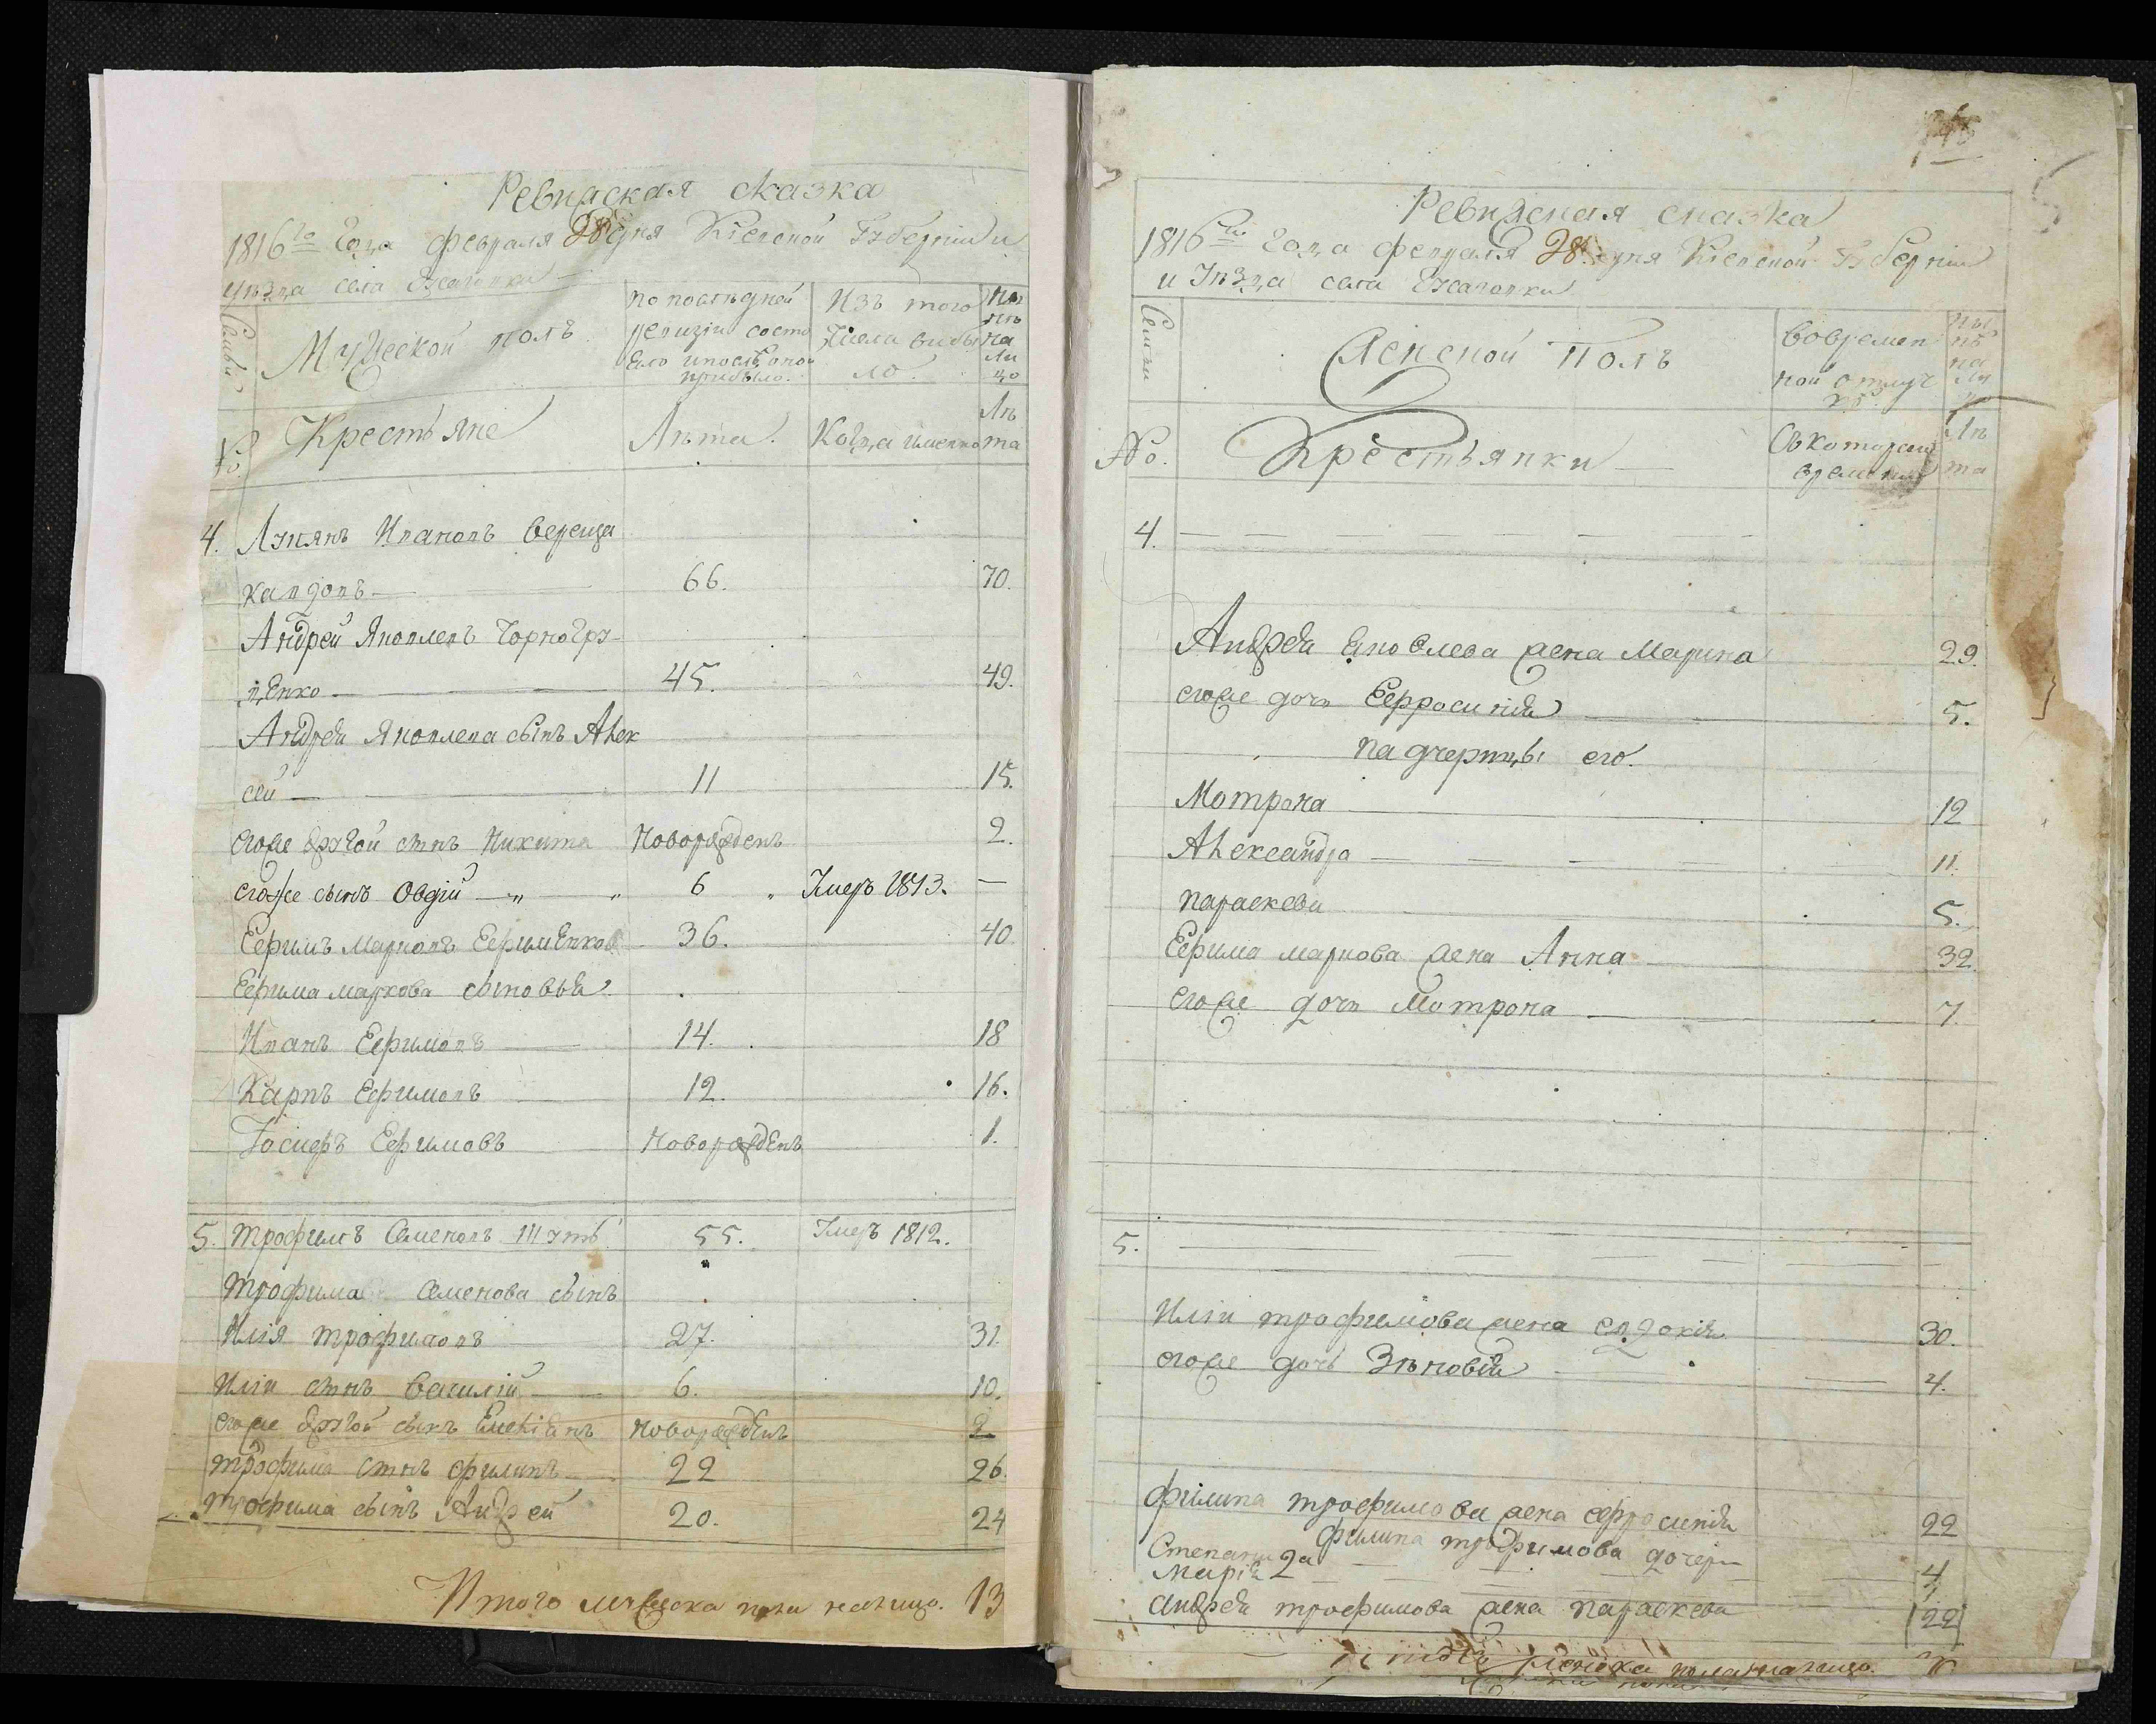 Ревижская сказка
1816го Года февраля 28 дня Кіевской Губерніи и
уѣзда села
Семьи
Мужеской полъ
по последней
ревизіи состо
яло и послѣ оной
прибыло.
Изъ того
числа выбы
ло.
Ны
нѣ
на
ли
цо
№.
Крестьяне
Лѣта.
Когда именно
Лѣ
та
4. Лукянъ Ивановъ Вереща
кандовъ 66. 70.
Андрей Яковлевъ Чорногру-
ценко 45. 49.
Андрея Яковлева сынъ Алек
сей 11 15.
егоже другой сынъ Никита Новорожденъ 2.
егоже сынъ Овдій 6 Умеръ 1813. —
Ефимъ Марковъ Ефименков 36. 40
Ефима маркова сыновья
Иванъ Ефимовъ 14. 18
Карпъ Ефимовъ 12. 16.
Іосифъ Ефимовъ Новорожденъ 1.
5. Трофимъ Семеновъ Шутъ 55. Умеръ 1812.
Трофима Семенова сынъ
Илія Трофимовъ 27. 31.
Иліи сынъ Василій 6. 10.
егоже другой сынъ Новорожденъ 2
Трофима сынъ Филипъ 22 26.
Трофима сынъ Андрей 20. 24
Итого мужеска пола налицо. 13
Ревижская сказка
1816го Года февраля 28 дня Кіевской Губерніи
и Уѣзда села
Семьи
Женской Полъ
Вовремен
ной отлуч
кѣ.
Ны
нѣ
на
ли
цо
№.
Крестьянки
Съ котораго
времени
Лѣ
та
4.
Андрея Яковлева жена Марина 29.
егоже дочь Ефросинія 5.
падчерицы его.
Мотрона 12
Александра 11.
Параскева 5.
Ефима маркова жена Анна 32.
егоже дочь Мотрона 7.
5.
Иліи трофимова жена Евдокія 30.
егоже дочь Зѣновія 4.
Филипа трофимова жена ефросинія 22
Филипа трофимова дочери
Степанида
Марія 2я 4
Андрея трофимова жена Параскева 22
женска пола налицо.